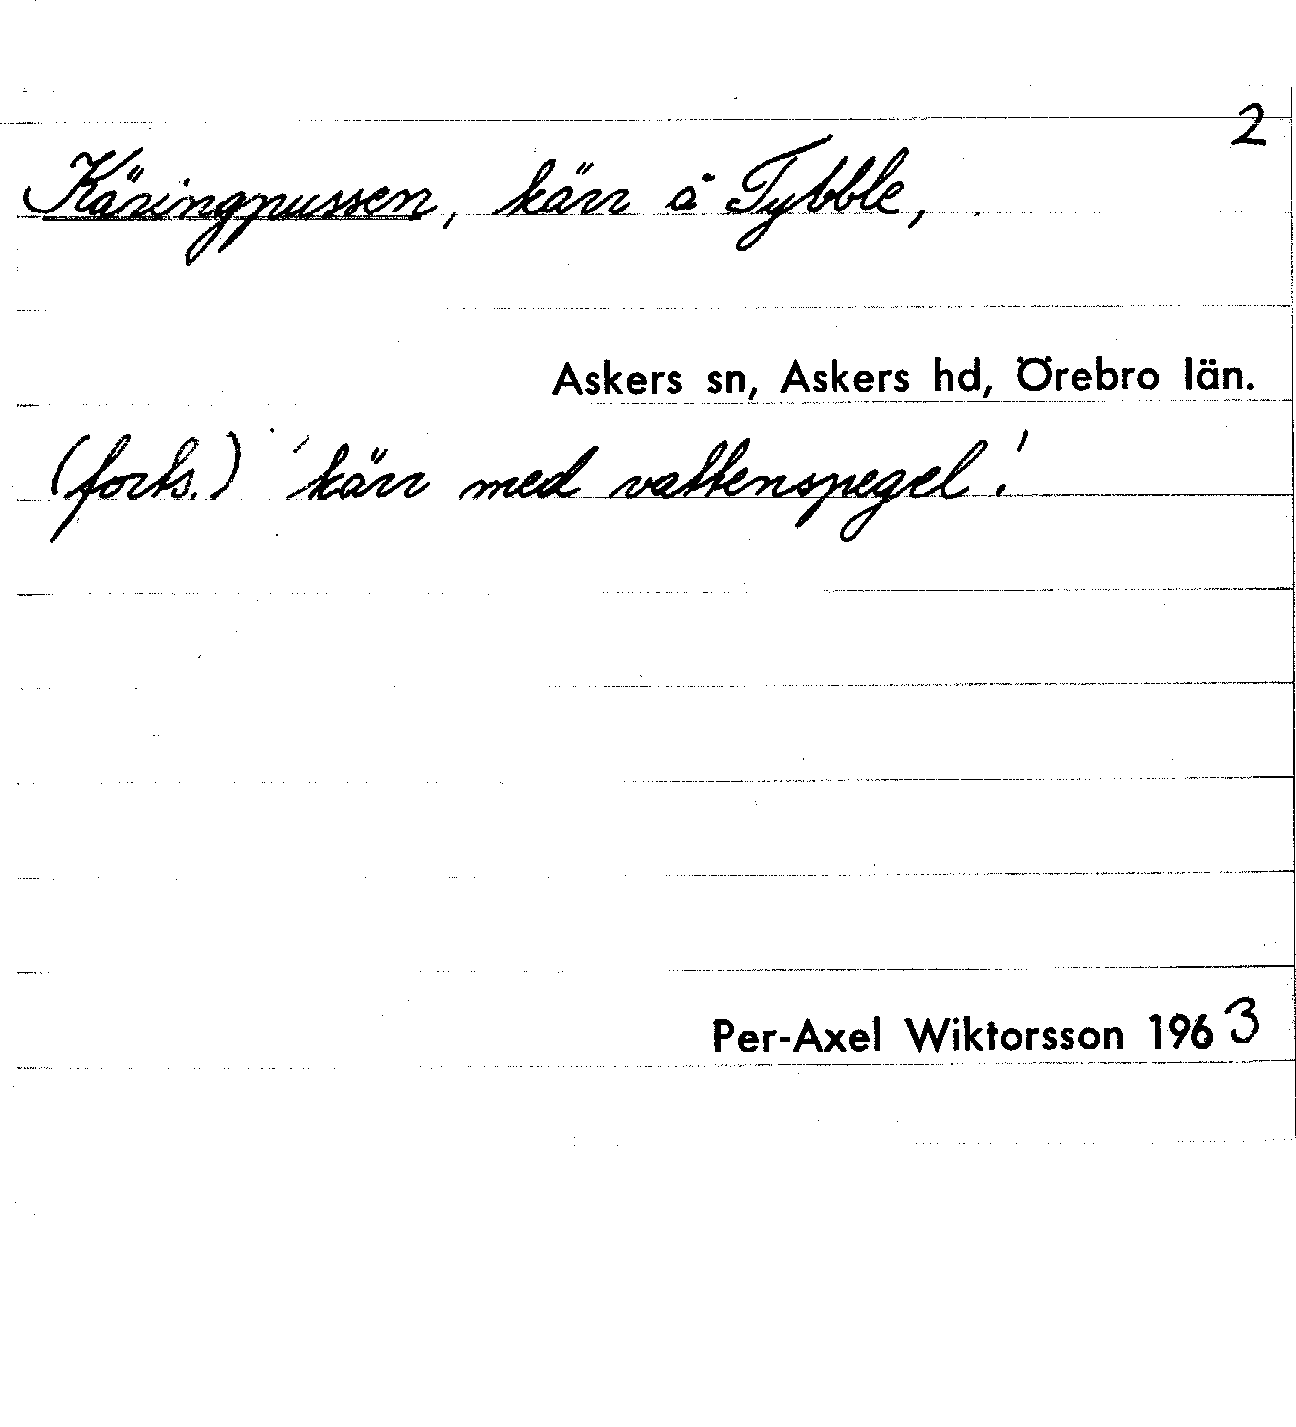 2
Käringpussen, kärr å Tybble,
Askers sn, Askers hd, Örebro län.
(forts.) 'kärr med vattenspegel.'
Per-Axel Wiktorsson 1963